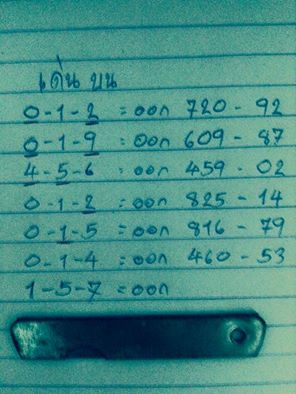 เด่น บน
0-1-2 = ออก 720 - 92
0-1-9 = ออก 609 - 87
4-5-6 = ออก 459 - 02
0-1-2 = ออก 825 - 14
0-1-5 = ออก 816 - 79
0-1-4 = ออก 460 - 53
1-5-7 = ออก